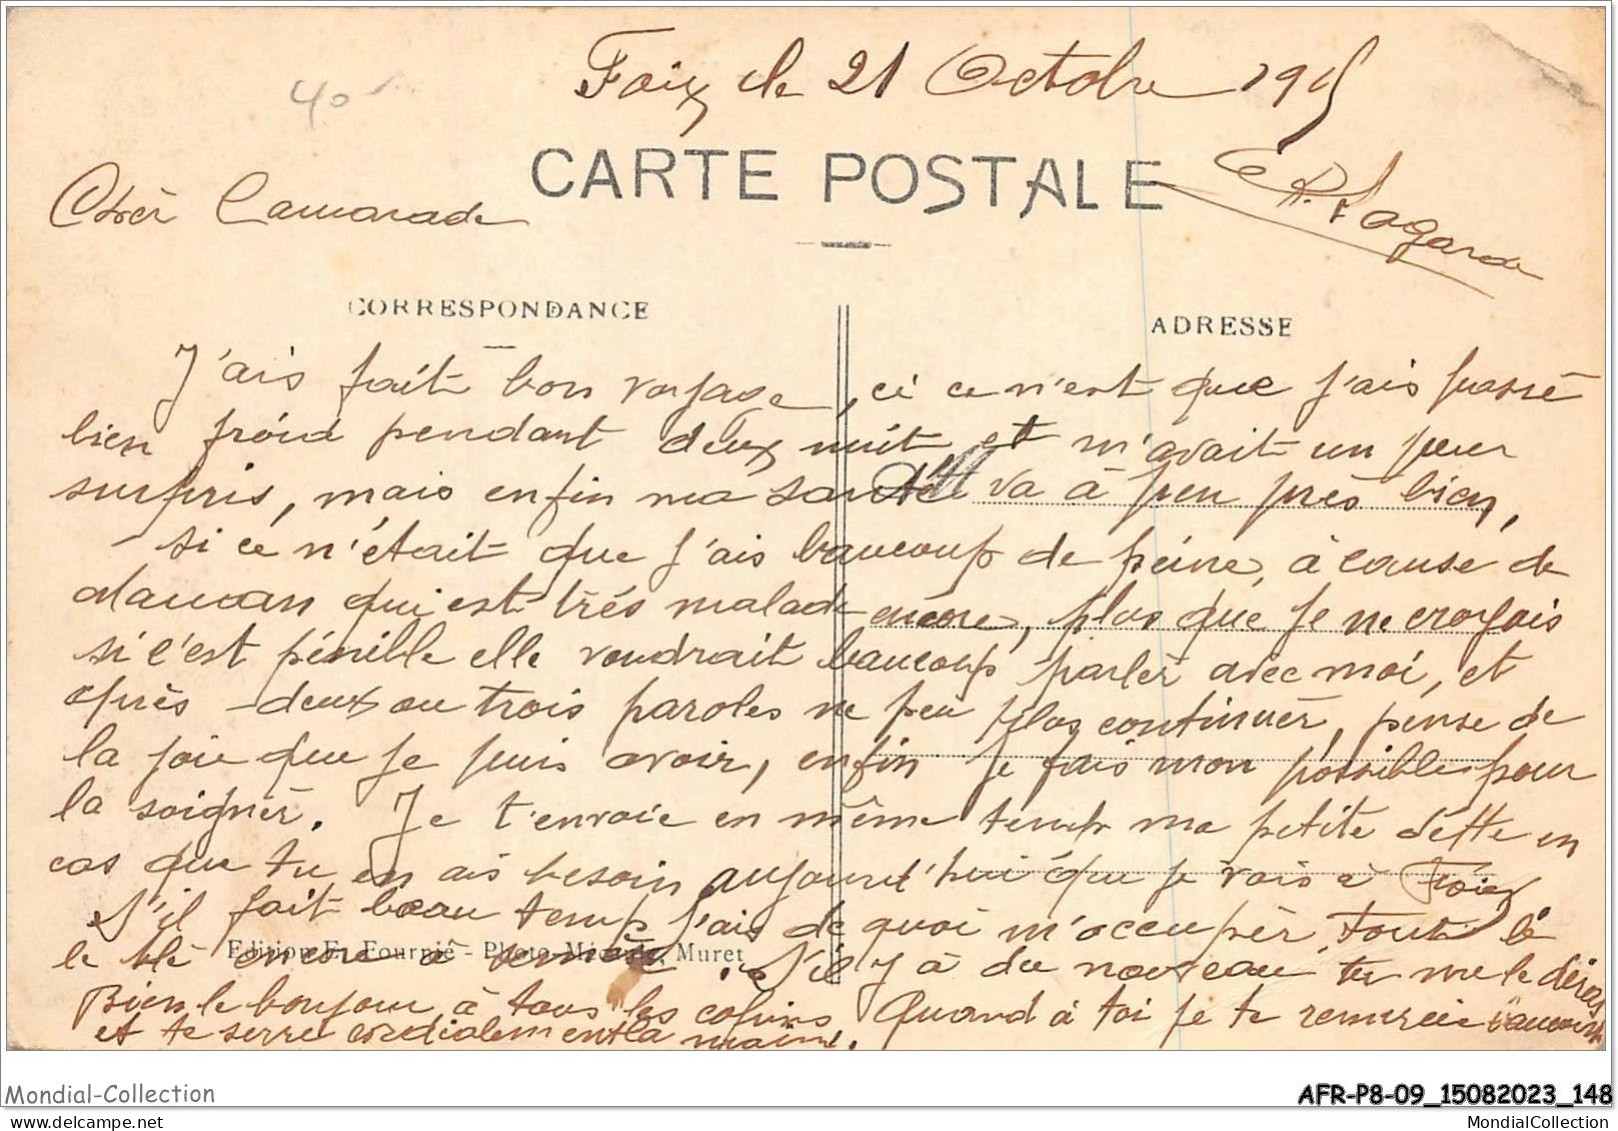 40
Foix le 21 Octobre 1915
CARTE POSTALE
P. Lagarde
Cher Camarade
CORRESPONDANCE
ADRESSE
J'ais fait bon voyage, ci ce n'est que j'ais passé
bien froid pendant deux nuit et m'avait un peu
surpris, mais enfin ma santé va à peu près bien,
si ce n'était que j'ais baucoup de peine, à cause de
alamman qui est très malade encore, plus que je ne croyais
si c'est pénible elle voudrait baucoup parler avec moi, et
après deux ou trois paroles ne peu plus continuer, pense de
la joie que je puis avoir, enfin je fais mon possible pour
la soigner. Je t'envoie en même temp ma petite dette en
cas que tu en ais besoin aujourd'hui que je vais à Foix
S'il fait beau temp j'ais de quoi m'occuper, tout le
le blé encore à semer. S'il y à du nouveau tu me le diras
Edition E. Fournié - Photo-Mécanic, Muret
Bien le bonjour à tous les copins Quand à toi je te remercie baucoup
et te serre cordialement la main.
Mondial-Collection
AFR-P8-09_15082023_148
MondialCollection.com
MondialCollection